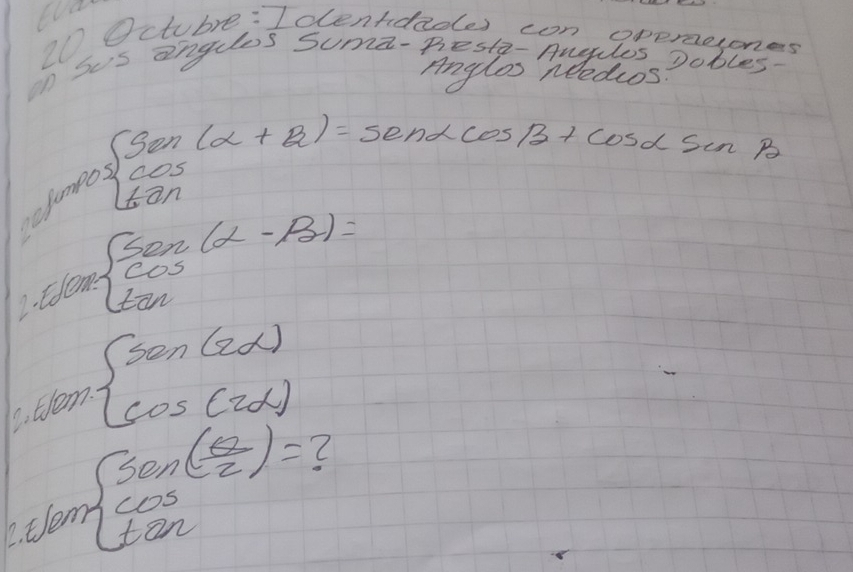 20 Octubre: Identidades con operaciones
en sus angulos Suma-Resta-Angulos Dobles-
Anglos Medios.
2 ejempos { Sen (α + B) = senα cos B + cosα Sen B
cos
tan
2.Ejem { Sen (α - B) =
cos
tan
2.Ejem. { sen (2α)
cos (2α)
2.Ejem { sen (θ/2) = ?
cos
tan